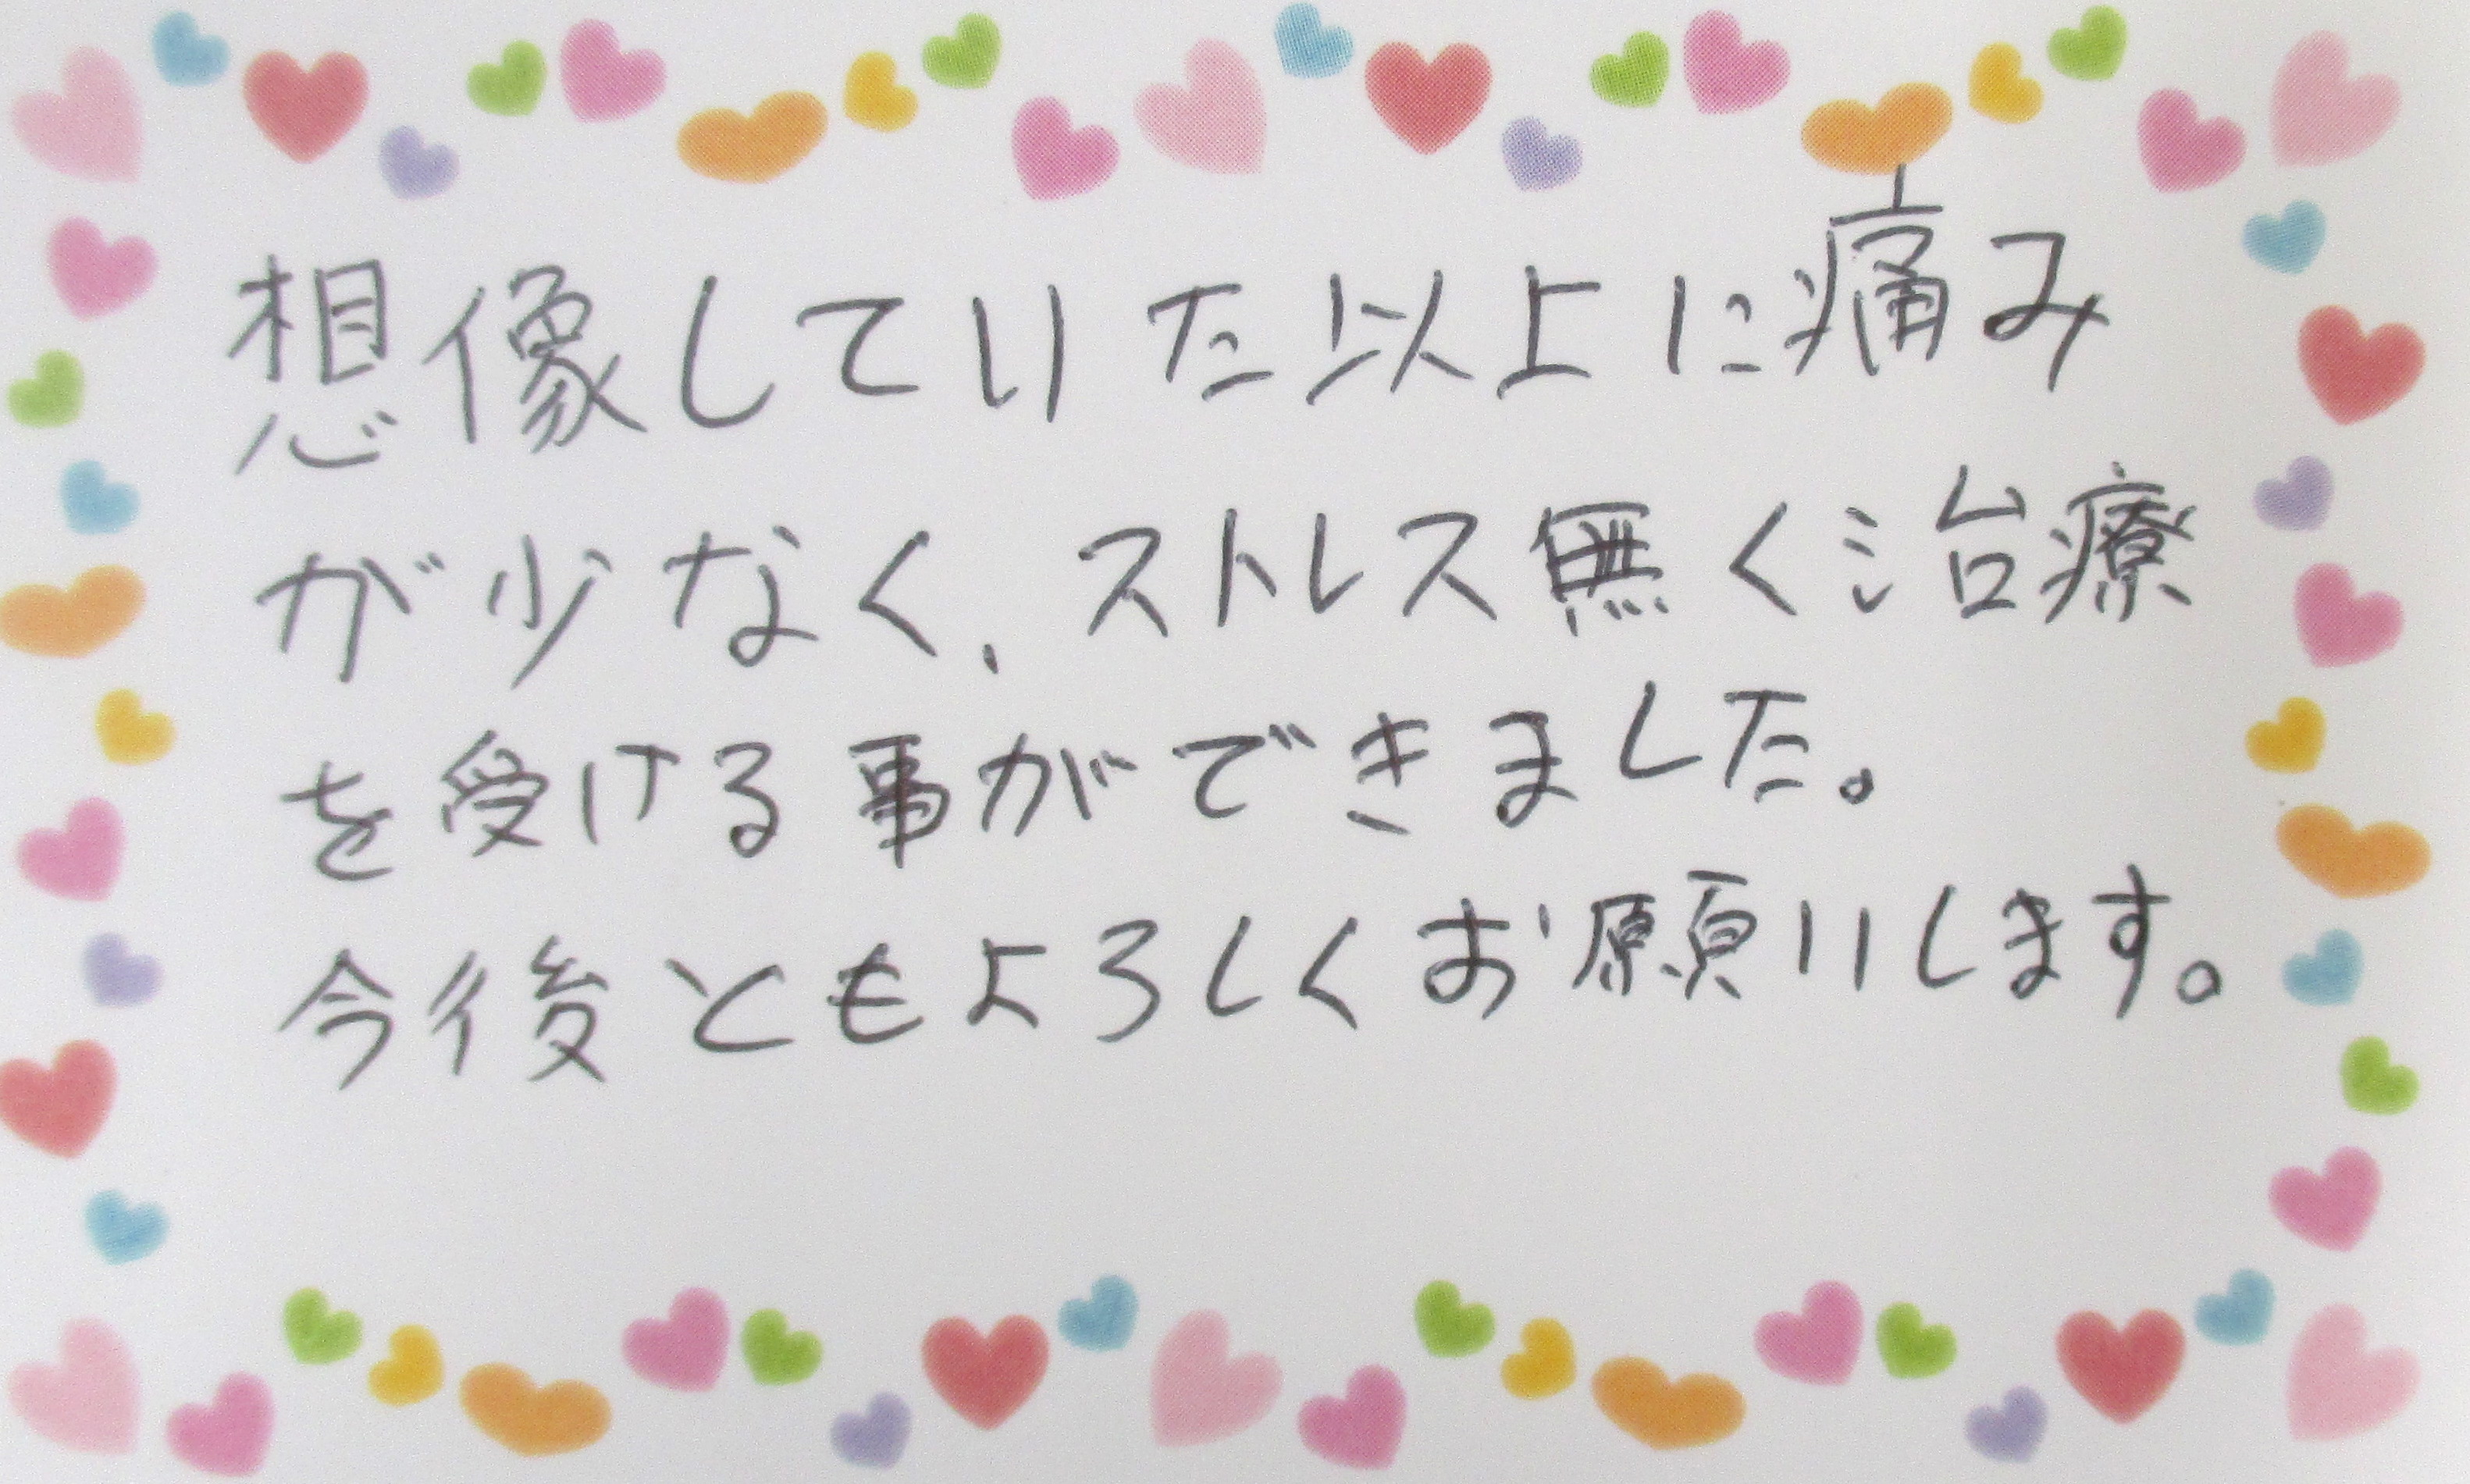 想像していた以上に痛み
が少なく、ストレス無く治療
を受ける事ができました。
今後ともよろしくお願いします。